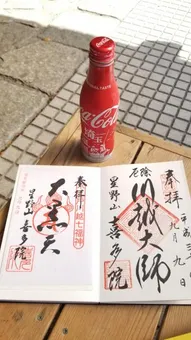 Coca-Cola
埼玉
奉拝
厄除
川越大師
星野山
喜多院
九月九日
奉拝
川越七福神
大黒天
星野山
喜多院